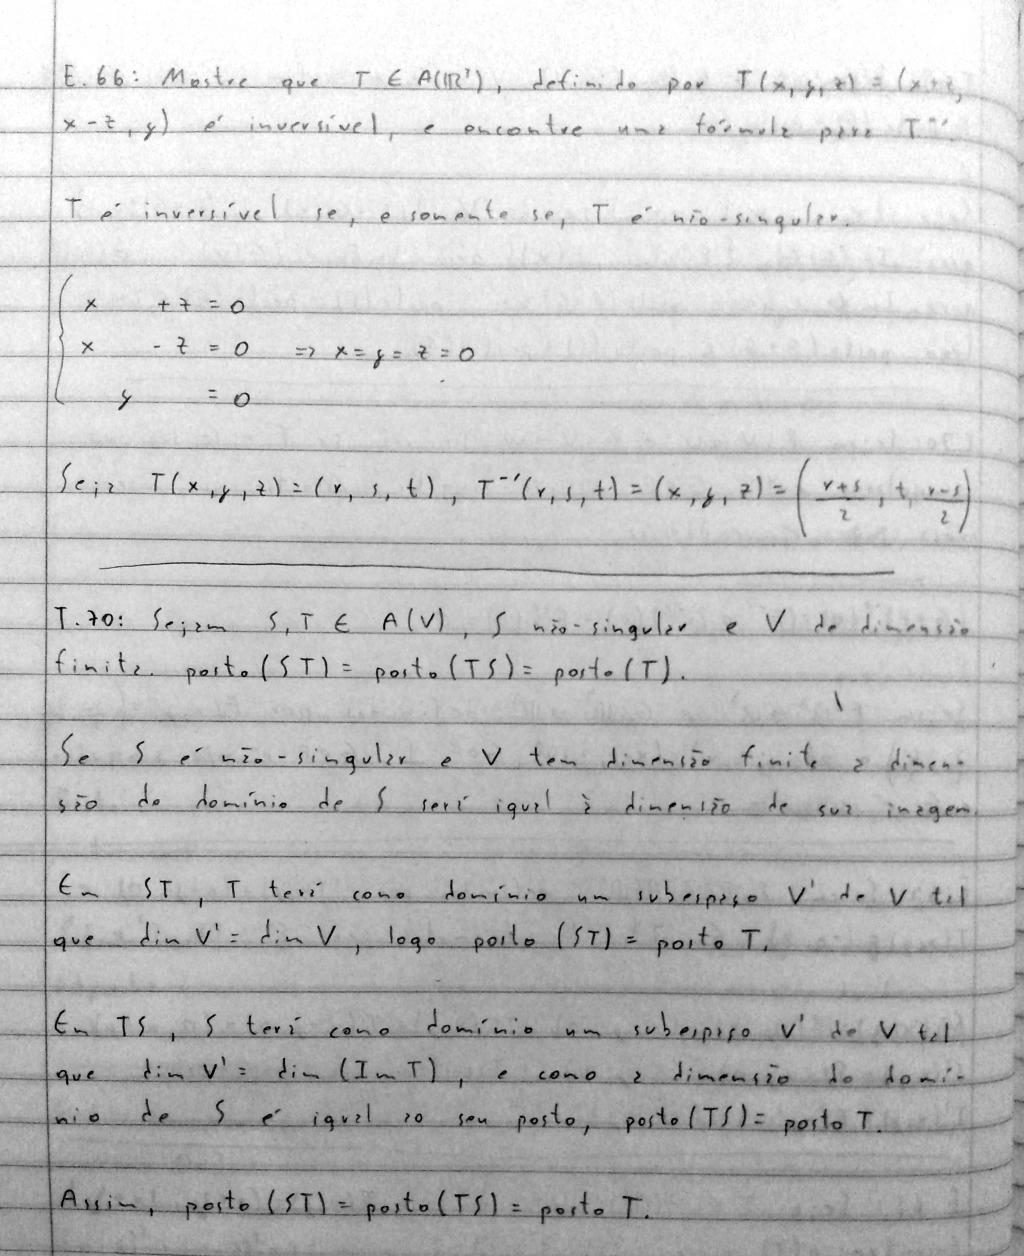 E.66: Mostre que T ∈ A(ℝ³), definido por T(x, y, z) = (x+z,
x-z, y) é inversível, e encontre uma fórmula para T⁻¹.
T é inversível se, e somente se, T é não-singular.
x + z = 0
x - z = 0 => x = y = z = 0
y = 0
Seja T(x, y, z) = (r, s, t), T⁻¹(r, s, t) = (x, y, z) = ((r+s)/2, t, (r-s)/2)
T.70: Sejam S, T ∈ A(V), S não-singular e V de dimensão
finita. posto(ST) = posto(TS) = posto(T).
Se S é não-singular e V tem dimensão finita a dimen-
são do domínio de S será igual à dimensão de sua imagem.
Em ST, T terá como domínio um subespaço V' de V tal
que dim V' = dim V, logo posto (ST) = posto T.
Em TS, S terá como domínio um subespaço V' de V tal
que dim V' = dim (Im T), e como a dimensão do domí-
nio de S é igual ao seu posto, posto(TS) = posto T.
Assim, posto (ST) = posto(TS) = posto T.